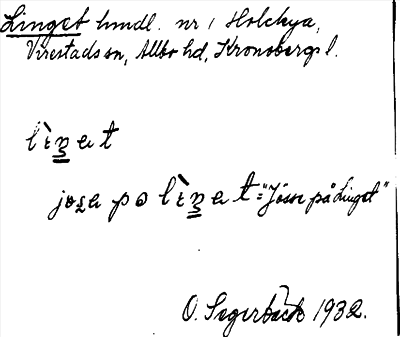 Linget hmdl. nr 1 Holekya,
Virestads sn, Allbo hd, Kronobergs l.
lìŋet
josa på lìŋet = "Jösse på Linget"
O. Segerbäck 1932.